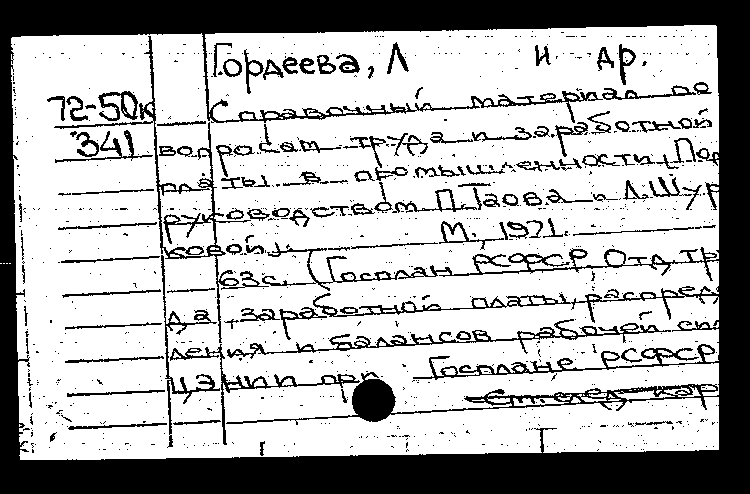 Гордеева, Л и др.
72-50к
341
Справочный материал по
вопросам труда и заработной
платы в промышленности. Под
руководством П.Таова и Л.Шур
ковой.
М., 1971.
63с. (Госплан РСФСР, Отд. тру
да, заработной платы, распреде
ления и балансов рабочей сил
ЦЭНИИ при Госплане РСФСР